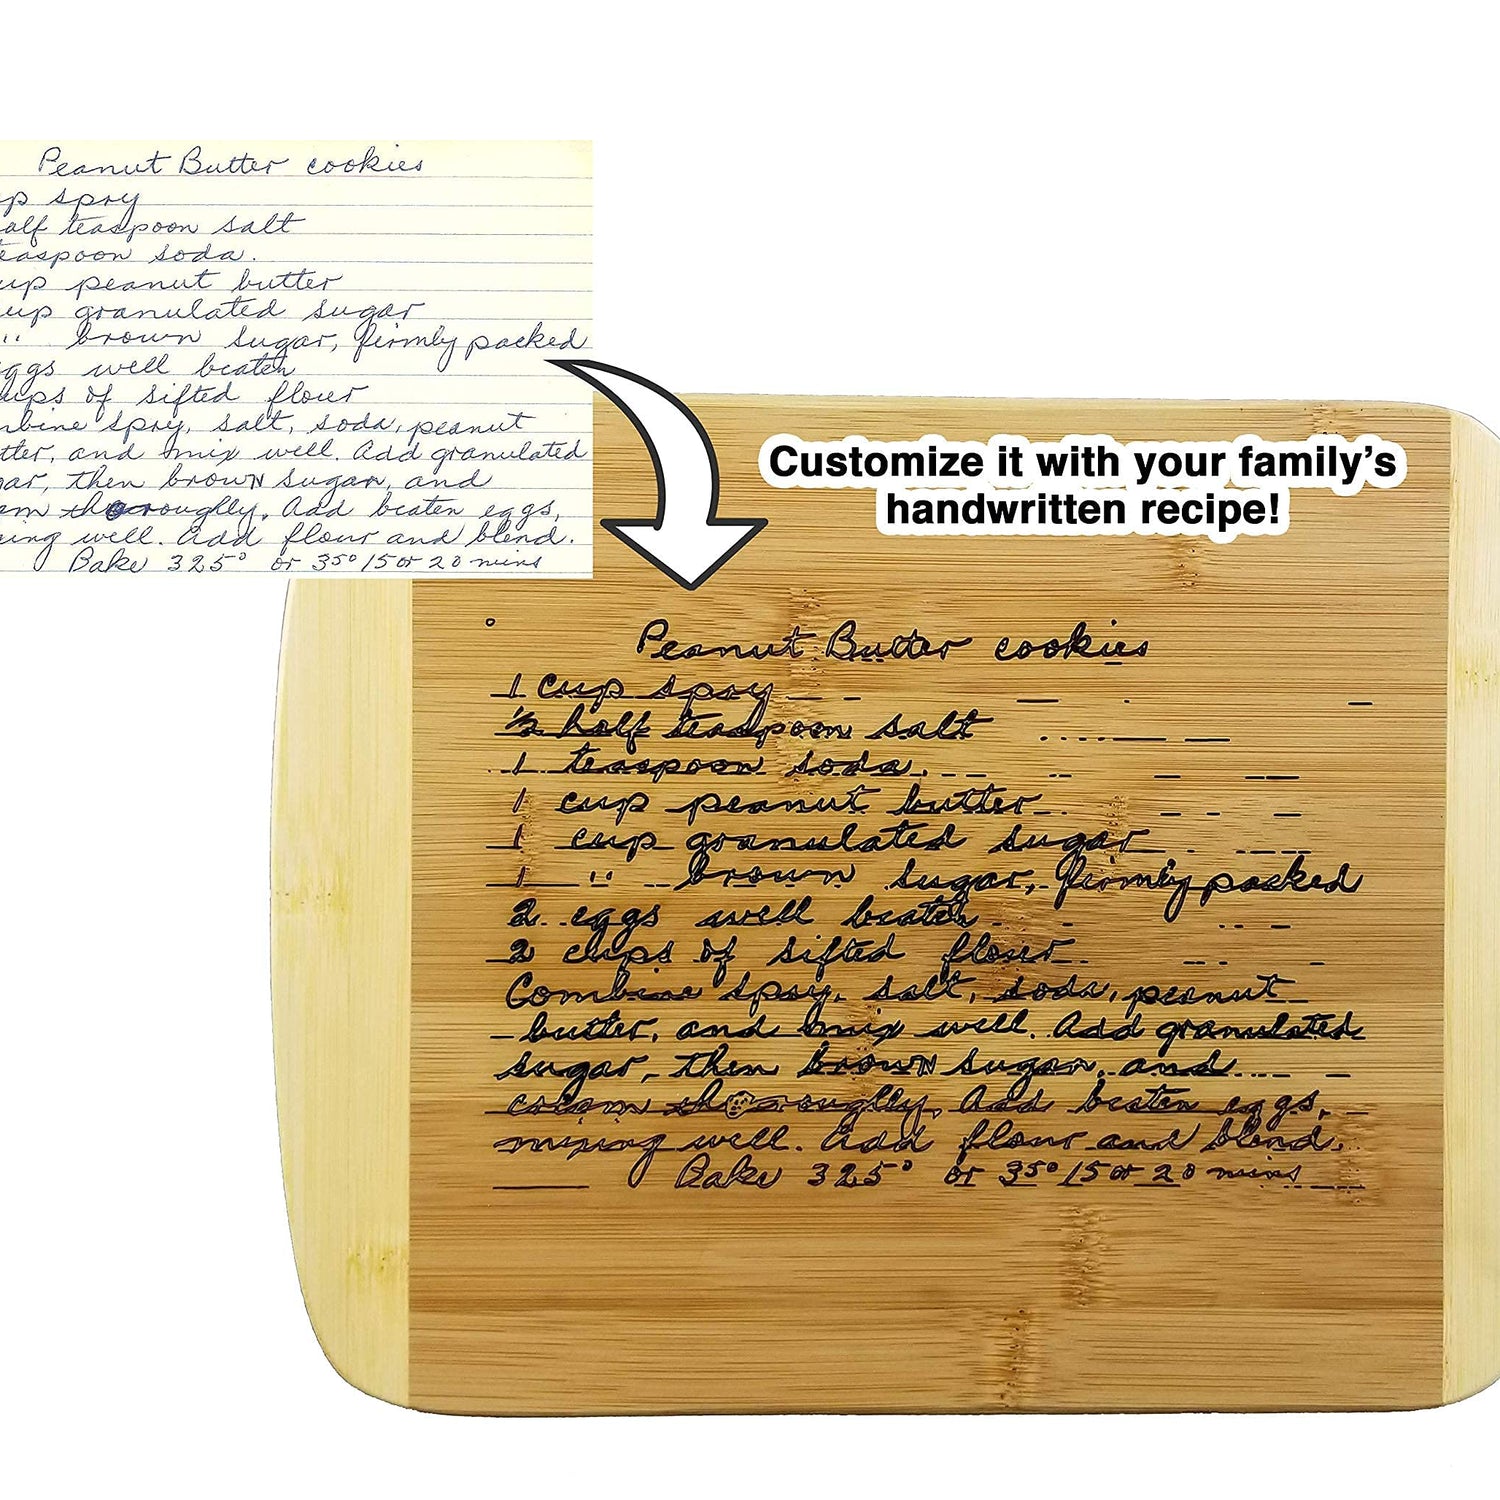 Peanut Butter cookies
up spry
alf teaspoon salt
teaspoon soda.
up peanut butter
up granulated sugar
" brown sugar, firmly packed
eggs well beaten
ups of sifted flour
mbine spry, salt, soda, peanut
tter, and mix well. Add granulated
gar, then brown sugar, and
am thoroughlly. Add beaten eggs,
ing well. Add flour and blend.
Bake 325° or 35° 15 or 20 mins
Customize it with your family's
handwritten recipe!
Peanut Butter cookies
1 cup spry
½ half teaspoon salt
1 teaspoon soda.
1 cup peanut butter
1 cup granulated sugar
1 " brown sugar, firmly packed
2 eggs well beaten
2 cups of sifted flour
Combine spry, salt, soda, peanut
butter, and mix well. Add granulated
sugar, then brown sugar, and
cream thoroughlly. Add beaten eggs,
mixing well. Add flour and blend.
Bake 325° or 35° 15 or 20 mins